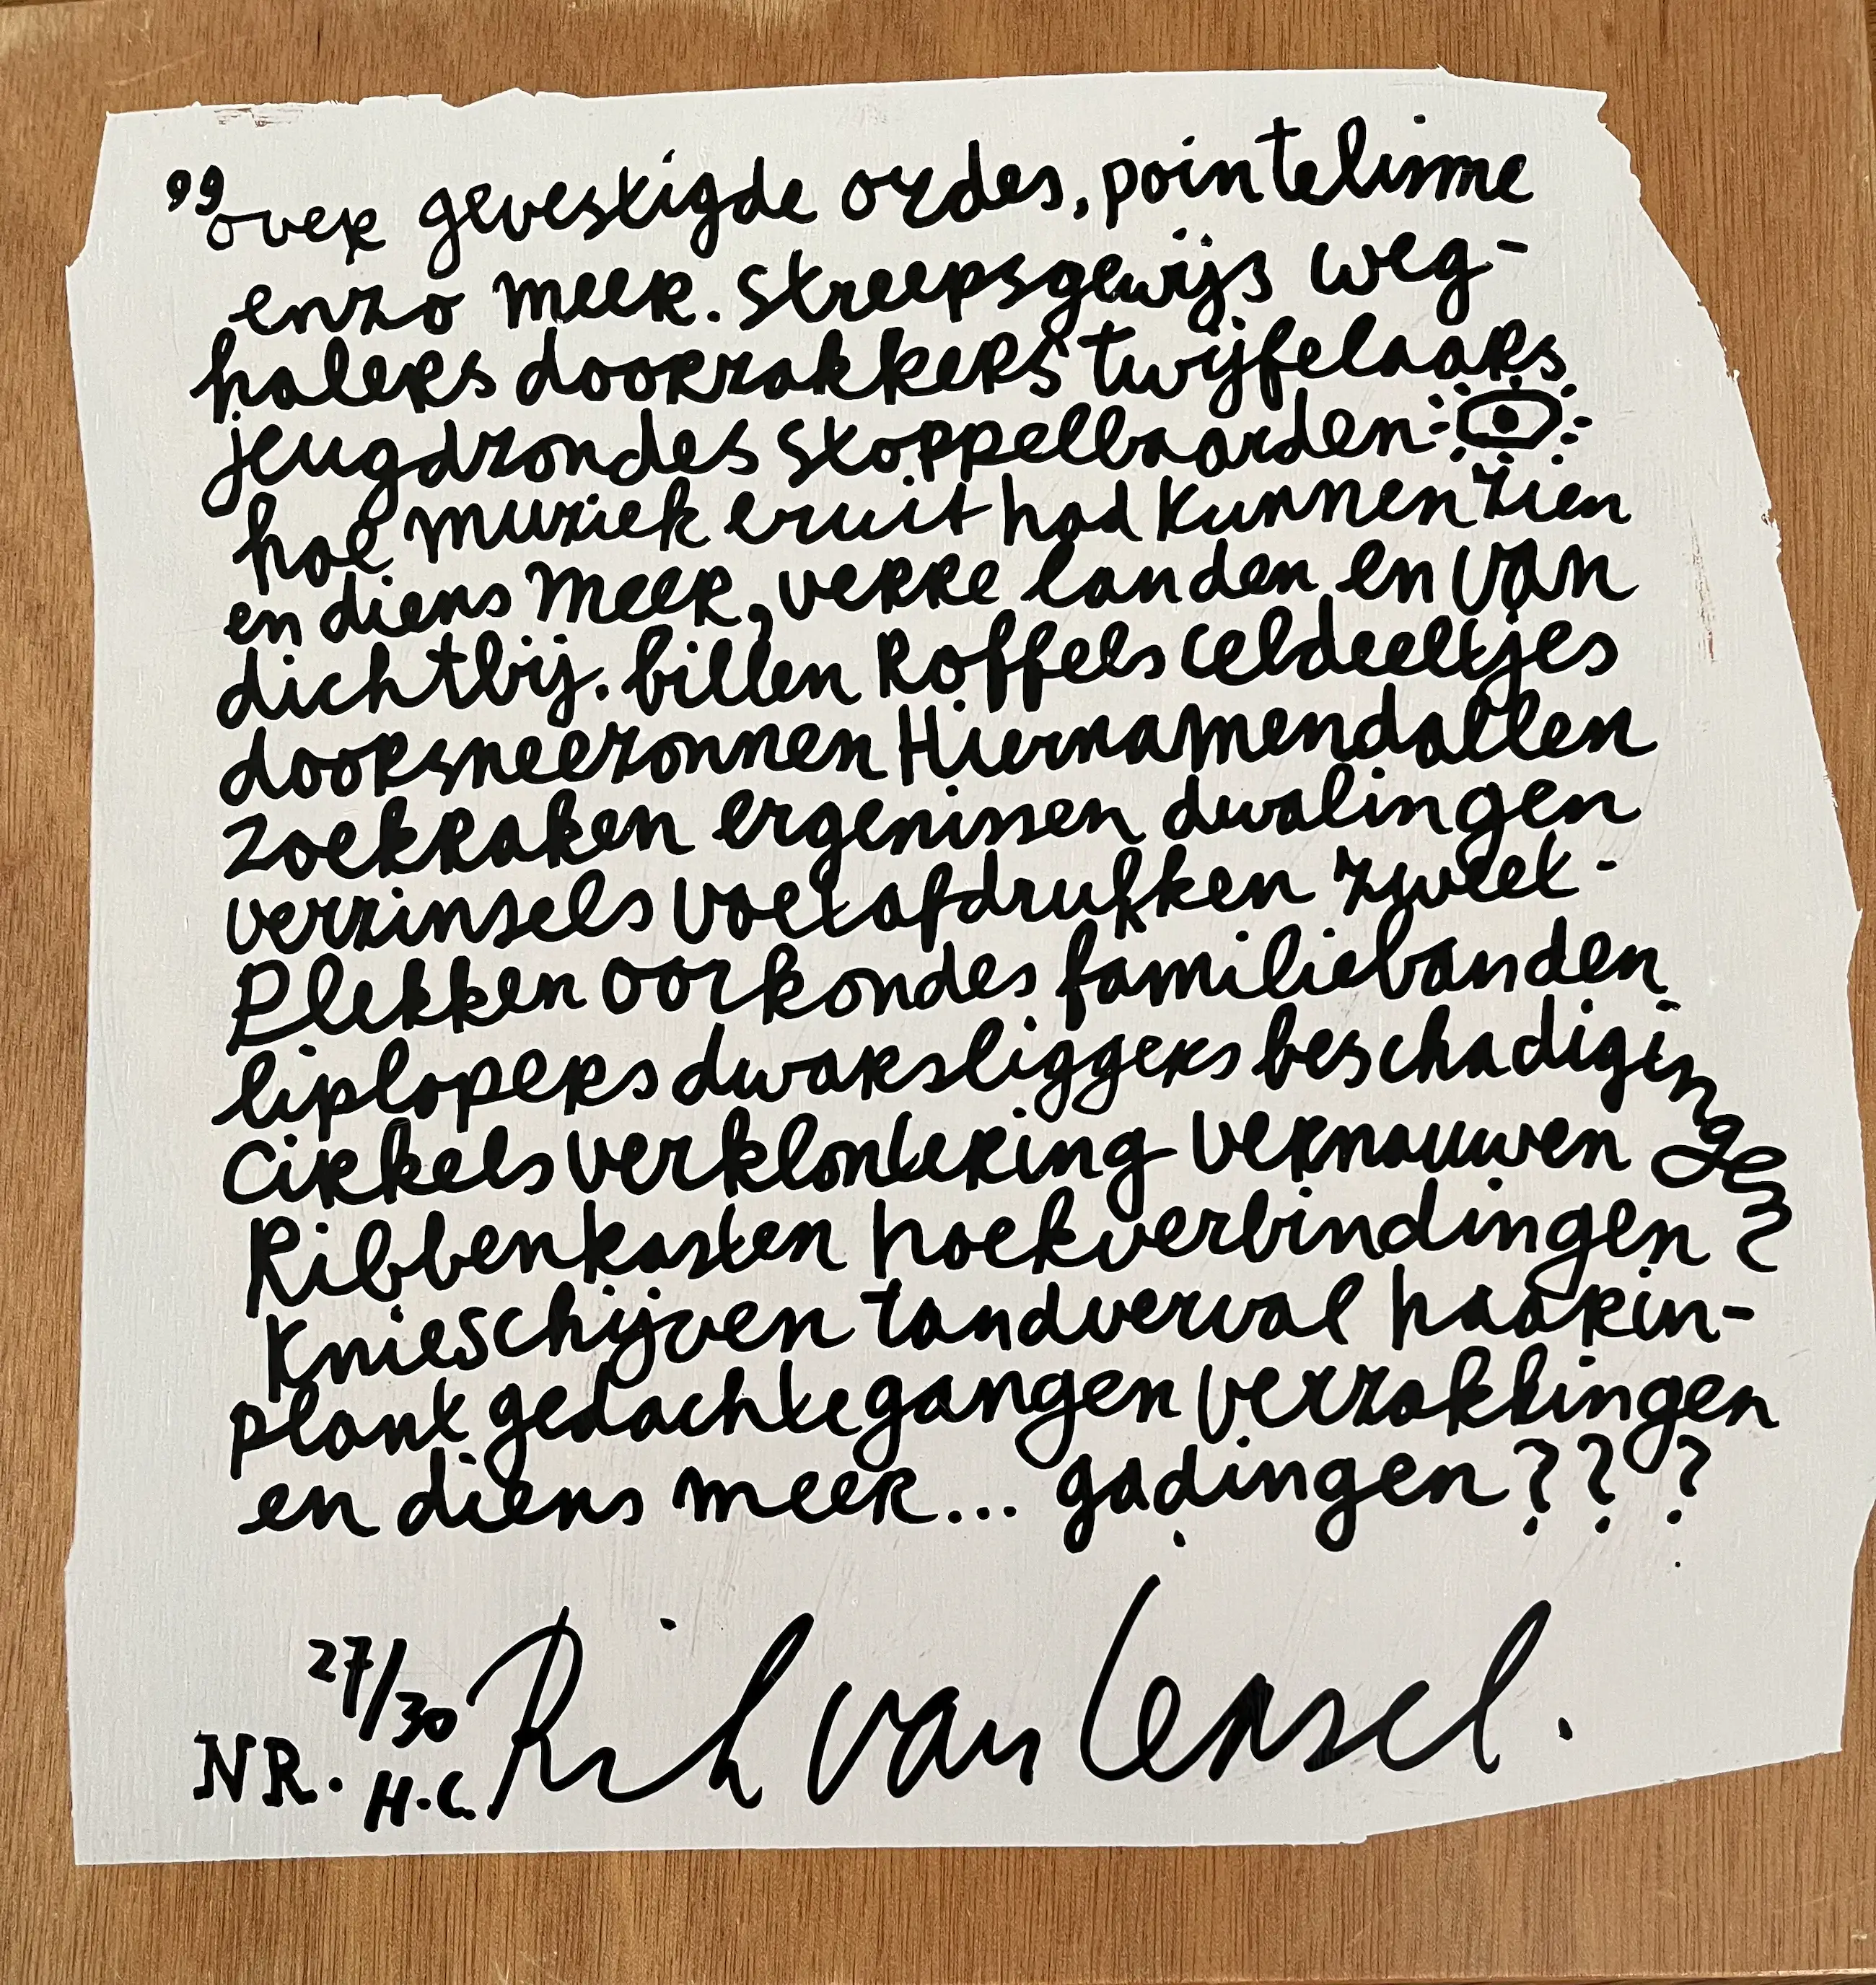 „over gevestigde ordes, pointelisme
enzo meer. streepsgewijs weg-
halers doorzakkers twijfelaars
jeugdzondes stoppelbaarden
hoe muziek eruit had kunnen zien
en diens meer, verre landen en van
dichtbij. billen Roffels celdeeltjes
doorsneezonnen Hiernamendallen
zoekraken ergenissen dwalingen
verzinsels voetafdrukken zweet-
Plekken oorkondes familiebanden
liplopers dwarsliggers beschadigingen
cirkels verklontering vernauwen
Ribbenkasten hoekverbindingen
Knieschijven tandverval haarin-
plant gedachtegangen verzakkingen
en diens meer... gadingen???
NR. 27/30 H.C. Rik van Iersel.